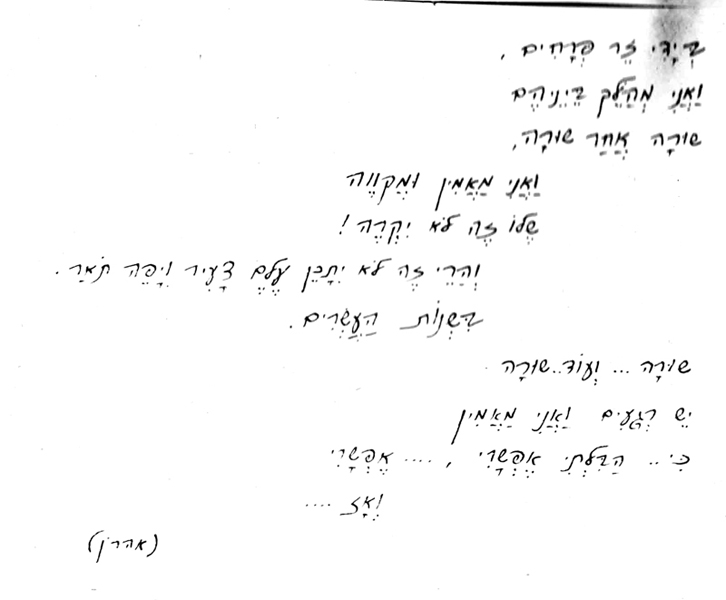 בְּיָדִי זֵר פְּרָחִים,
וַאֲנִי מְהַלֵּךְ בֵּינֵיהֶם
שׁוּרָה אַחַר שׁוּרָה,
וַאֲנִי מַאֲמִין וּמְקַוֶּוה
שֶׁלּוֹ זֶה לֹא יִקְרֶה!
וְהֲרֵי זֶה לֹא יִתָּכֵן עֶלֶם צָעִיר וִיפֵה תֹּאַר.
בִּשְׁנוֹת הָעֶשְׂרִים.
שׁוּרָה ... וְעוֹד..שׁוּרָה
יֵשׁ רְגָעִים וַאֲנִי מַאֲמִין
כִּי.. הַבִּלְתִּי אֶפְשָׁרִי , .... אֶפְשָׁרִי
וְאָז ....
(אהרן)